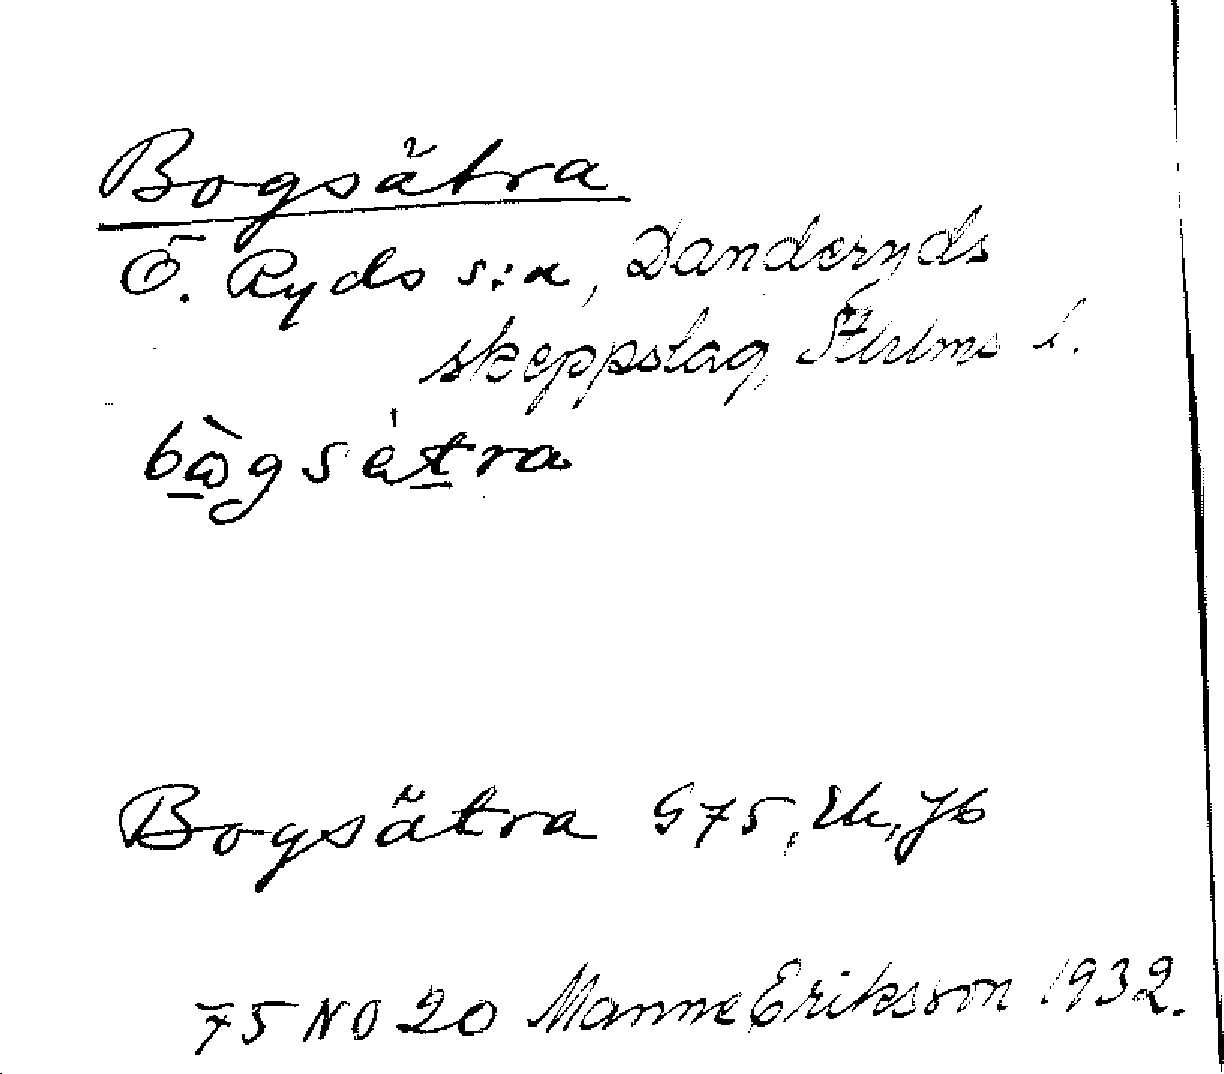 Bogsätra
Ö. Ryds s:n, Danderyds
skeppslag, Sthlms l.
bɷ̀gsétra
Bogsätra G75, Ek, Jb
75 NO 20 Manne Eriksson 1932.